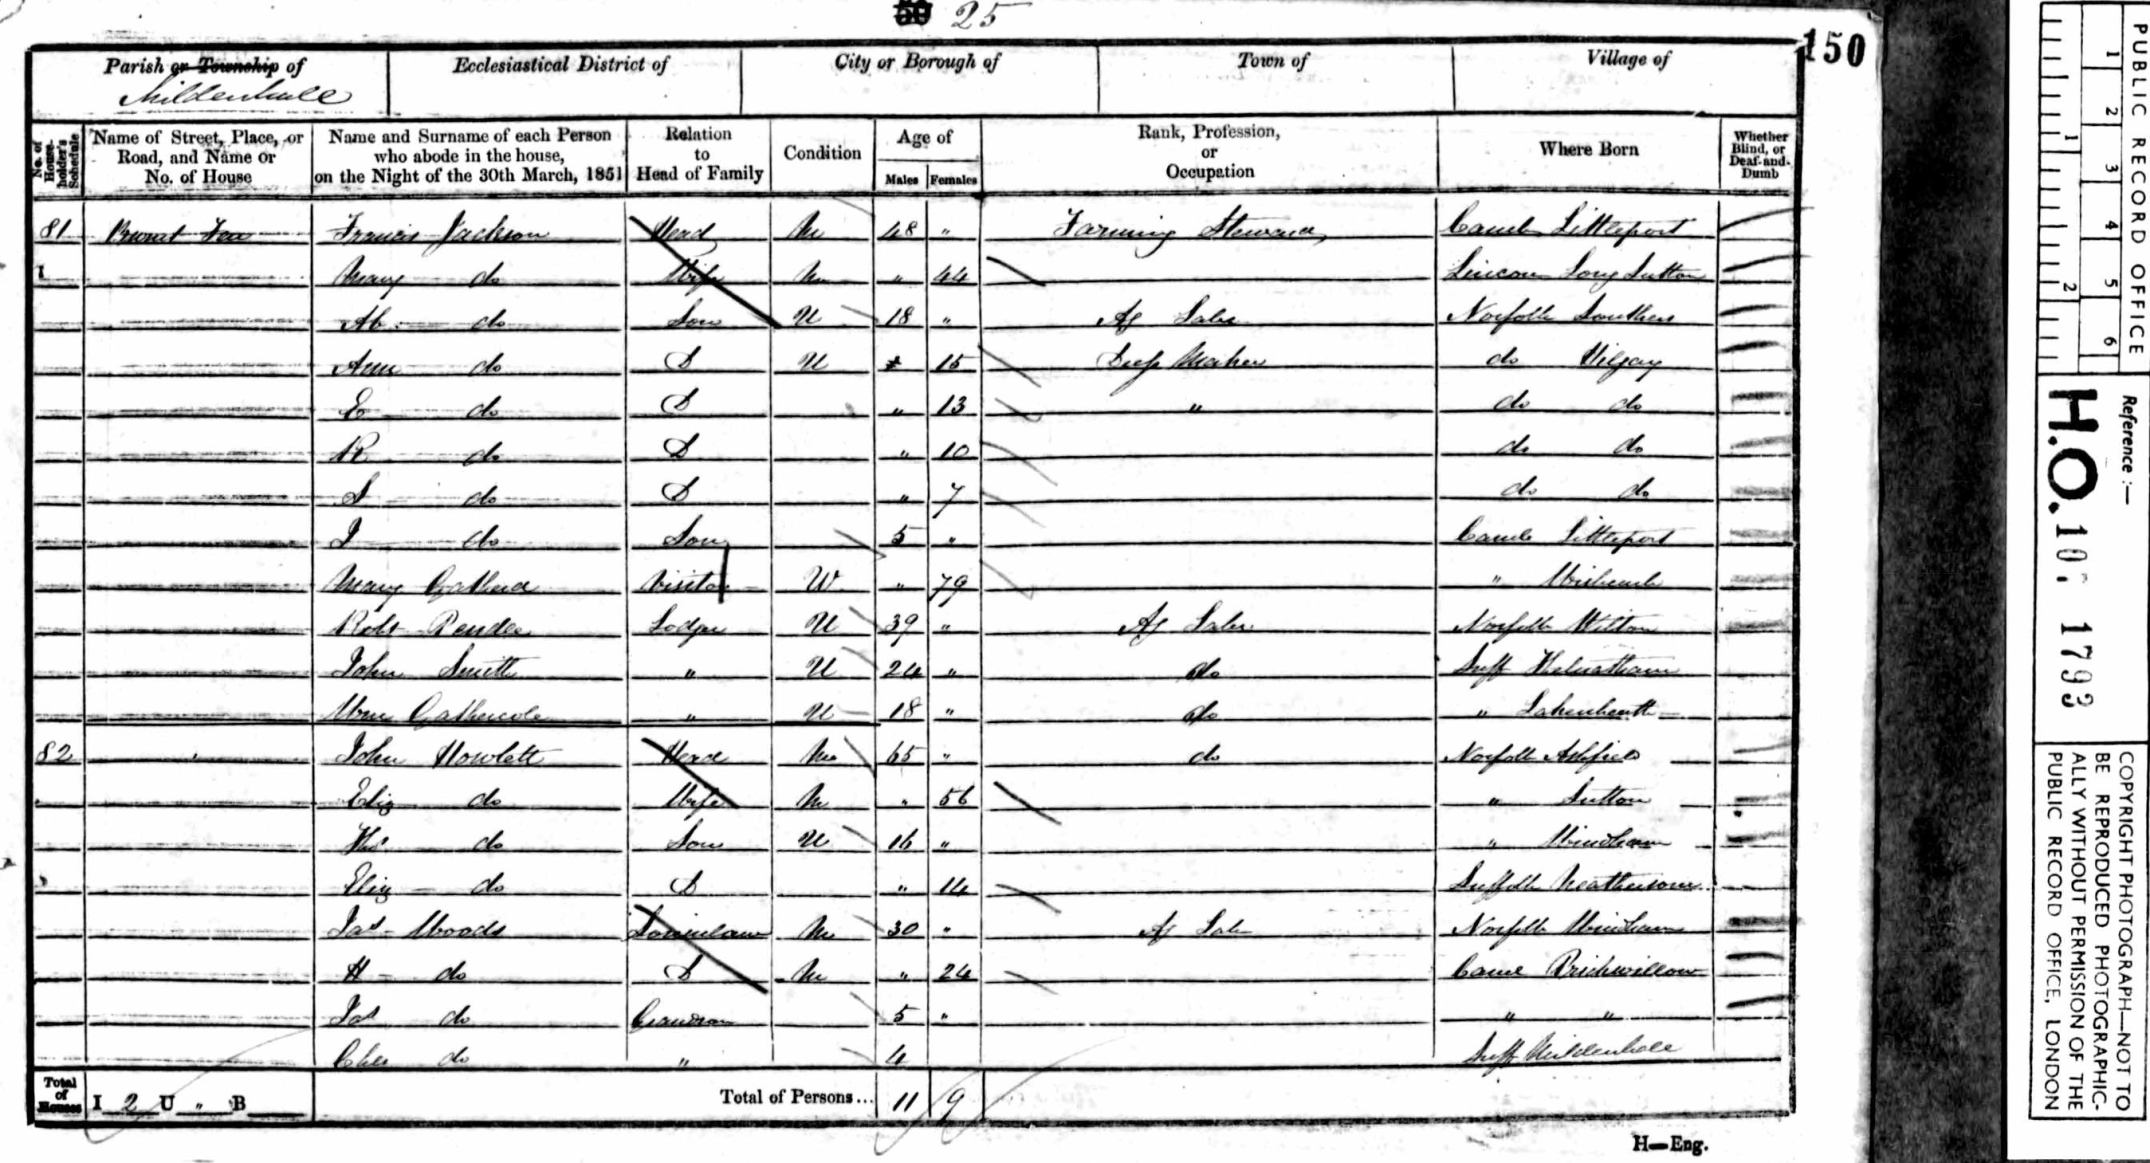 50 25
150
Parish or Township of Ecclesiastical District of City or Borough of Town of Village of
Mildenhall
No. of House-holder's Schedule
Name of Street, Place, or Road, and Name or No. of House
Name and Surname of each Person who abode in the house, on the Night of the 30th March, 1851
Relation to Head of Family
Condition
Age of
Males Females
Rank, Profession, or Occupation
Where Born
Whether Blind, or Deaf-and-Dumb
81 Burnt Fen Francis Jackson Head M 48 " Farming Steward Camb Littleport
1 Mary do Wife M " 44 Lincon Long Sutton
Ab. do Son U 18 " Ag Labr Norfolk
Ann do D U 15 Dress Maker do Hilgay
E do D " 13 " do do
R do D " 10 do do
S do D " 7 do do
J do Son 5 " Camb Littleport
Mary Visitor W " 79 " Wisbeach
Robt Lodger U 39 " Ag Labr Norfolk Wilton
John Smith " U 24 " do Suff
Wm Gathercole " U 18 " do " Lakenheath
82 " John Howlett Head M 65 " do Norfolk Ashfield
Eliz do Wife M " 56 " Sutton
do Son U 16 " " Windham
Eliz do D " 14 Suffolk
Jas Woods Soninlaw M 30 " Ag Lab Norfolk Windham
H do D M " 24 Came Prickwillow
Jas do Grandson 5 " " "
Chas do " 4 Suff Mildenhall
Total of Houses I 2 U " B Total of Persons... 11 9
H—Eng.
PUBLIC RECORD OFFICE
1 2 3 4 5 6
1 2
Reference:—
H.O. 107 1793
COPYRIGHT PHOTOGRAPH—NOT TO
BE REPRODUCED PHOTOGRAPHIC-
ALLY WITHOUT PERMISSION OF THE
PUBLIC RECORD OFFICE, LONDON